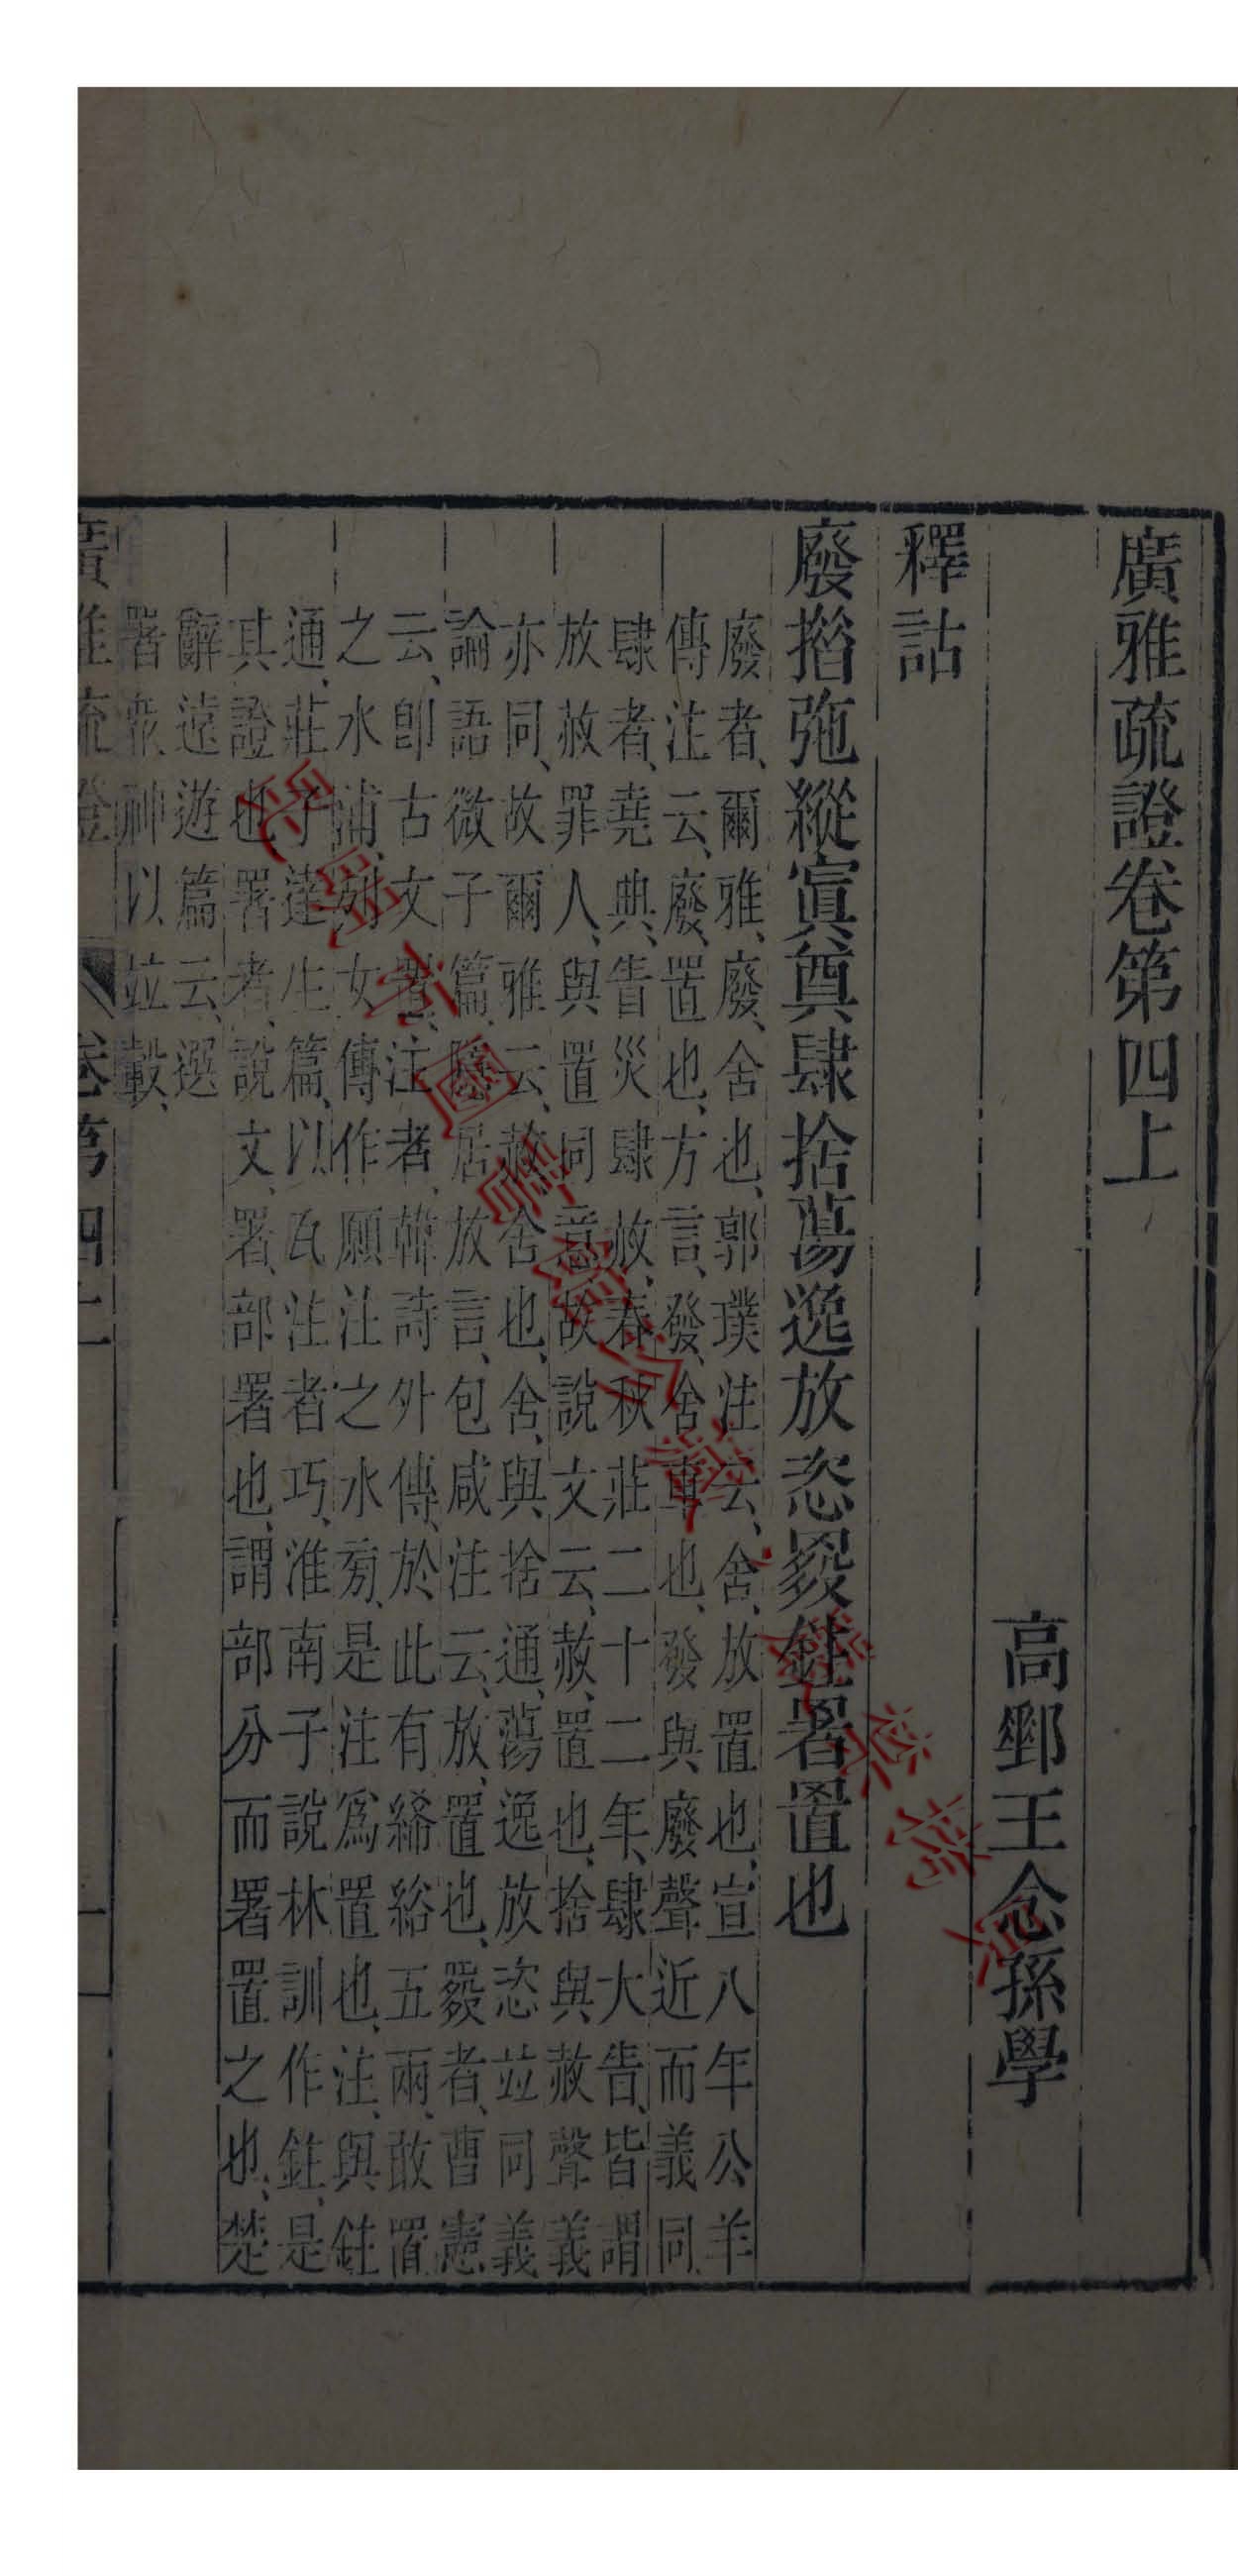 廣雅疏證卷第四上
高郵王念孫學
釋詁
廢㨯弛縱窴奠肆捨蕩逸放恣罬鉒署置也
廢者、爾雅、廢、舍也、郭璞注云、舍、放置也、宣八年公羊
傳注云、廢、置也、方言、發、舍車也、發與廢聲近而義同
肆者、堯典、眚災肆赦、春秋莊二十二年、肆大眚、皆謂
放赦罪人、與置同意、故說文云、赦、置也、捨與赦聲義
亦同、故爾雅云、赦、舍也、舍、與捨通、蕩逸放恣並同義
論語微子篇、隱居放言、包咸注云、放、置也、罬者、曹憲
云、卽古文置、注者、韓詩外傳、於此有絺綌五兩、敢置
之水浦、列女傳作願注之水旁、是注爲置也、注、與鉒
通、莊子達生篇、以瓦注者巧、淮南子說林訓作鉒、是
其證也、署者、說文、署、部署也、謂部分而署置之也、楚
辭遠遊篇云、選
署衆神以並轂、
廣雅疏證
卷第四上
一